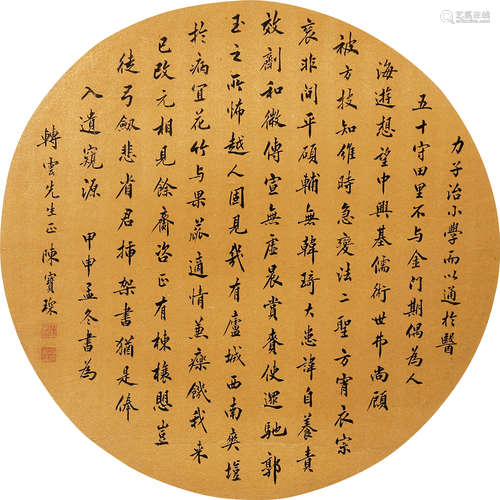 力子治小學而以通於醫
五十守田里不与金門期偶為人
海遊想望中興基儒術世弗尚顧
被方技知維時急變法二聖方宵衣宗
哀非間平頋輔無韓琦大患諱自養責
效劑和微傳宣無虚晨賞賚使遝馳郭
玉之所怖越人固見我有廬城西南爽塏
於病宜花竹与果蓏適情蕙療饑我来
已改元相見餘齋咨正有棟榱思豈
徒弓劔悲省君插架書猶是俸
入遺窺源 甲申孟冬書為
轉雲先生正 陳寶琛